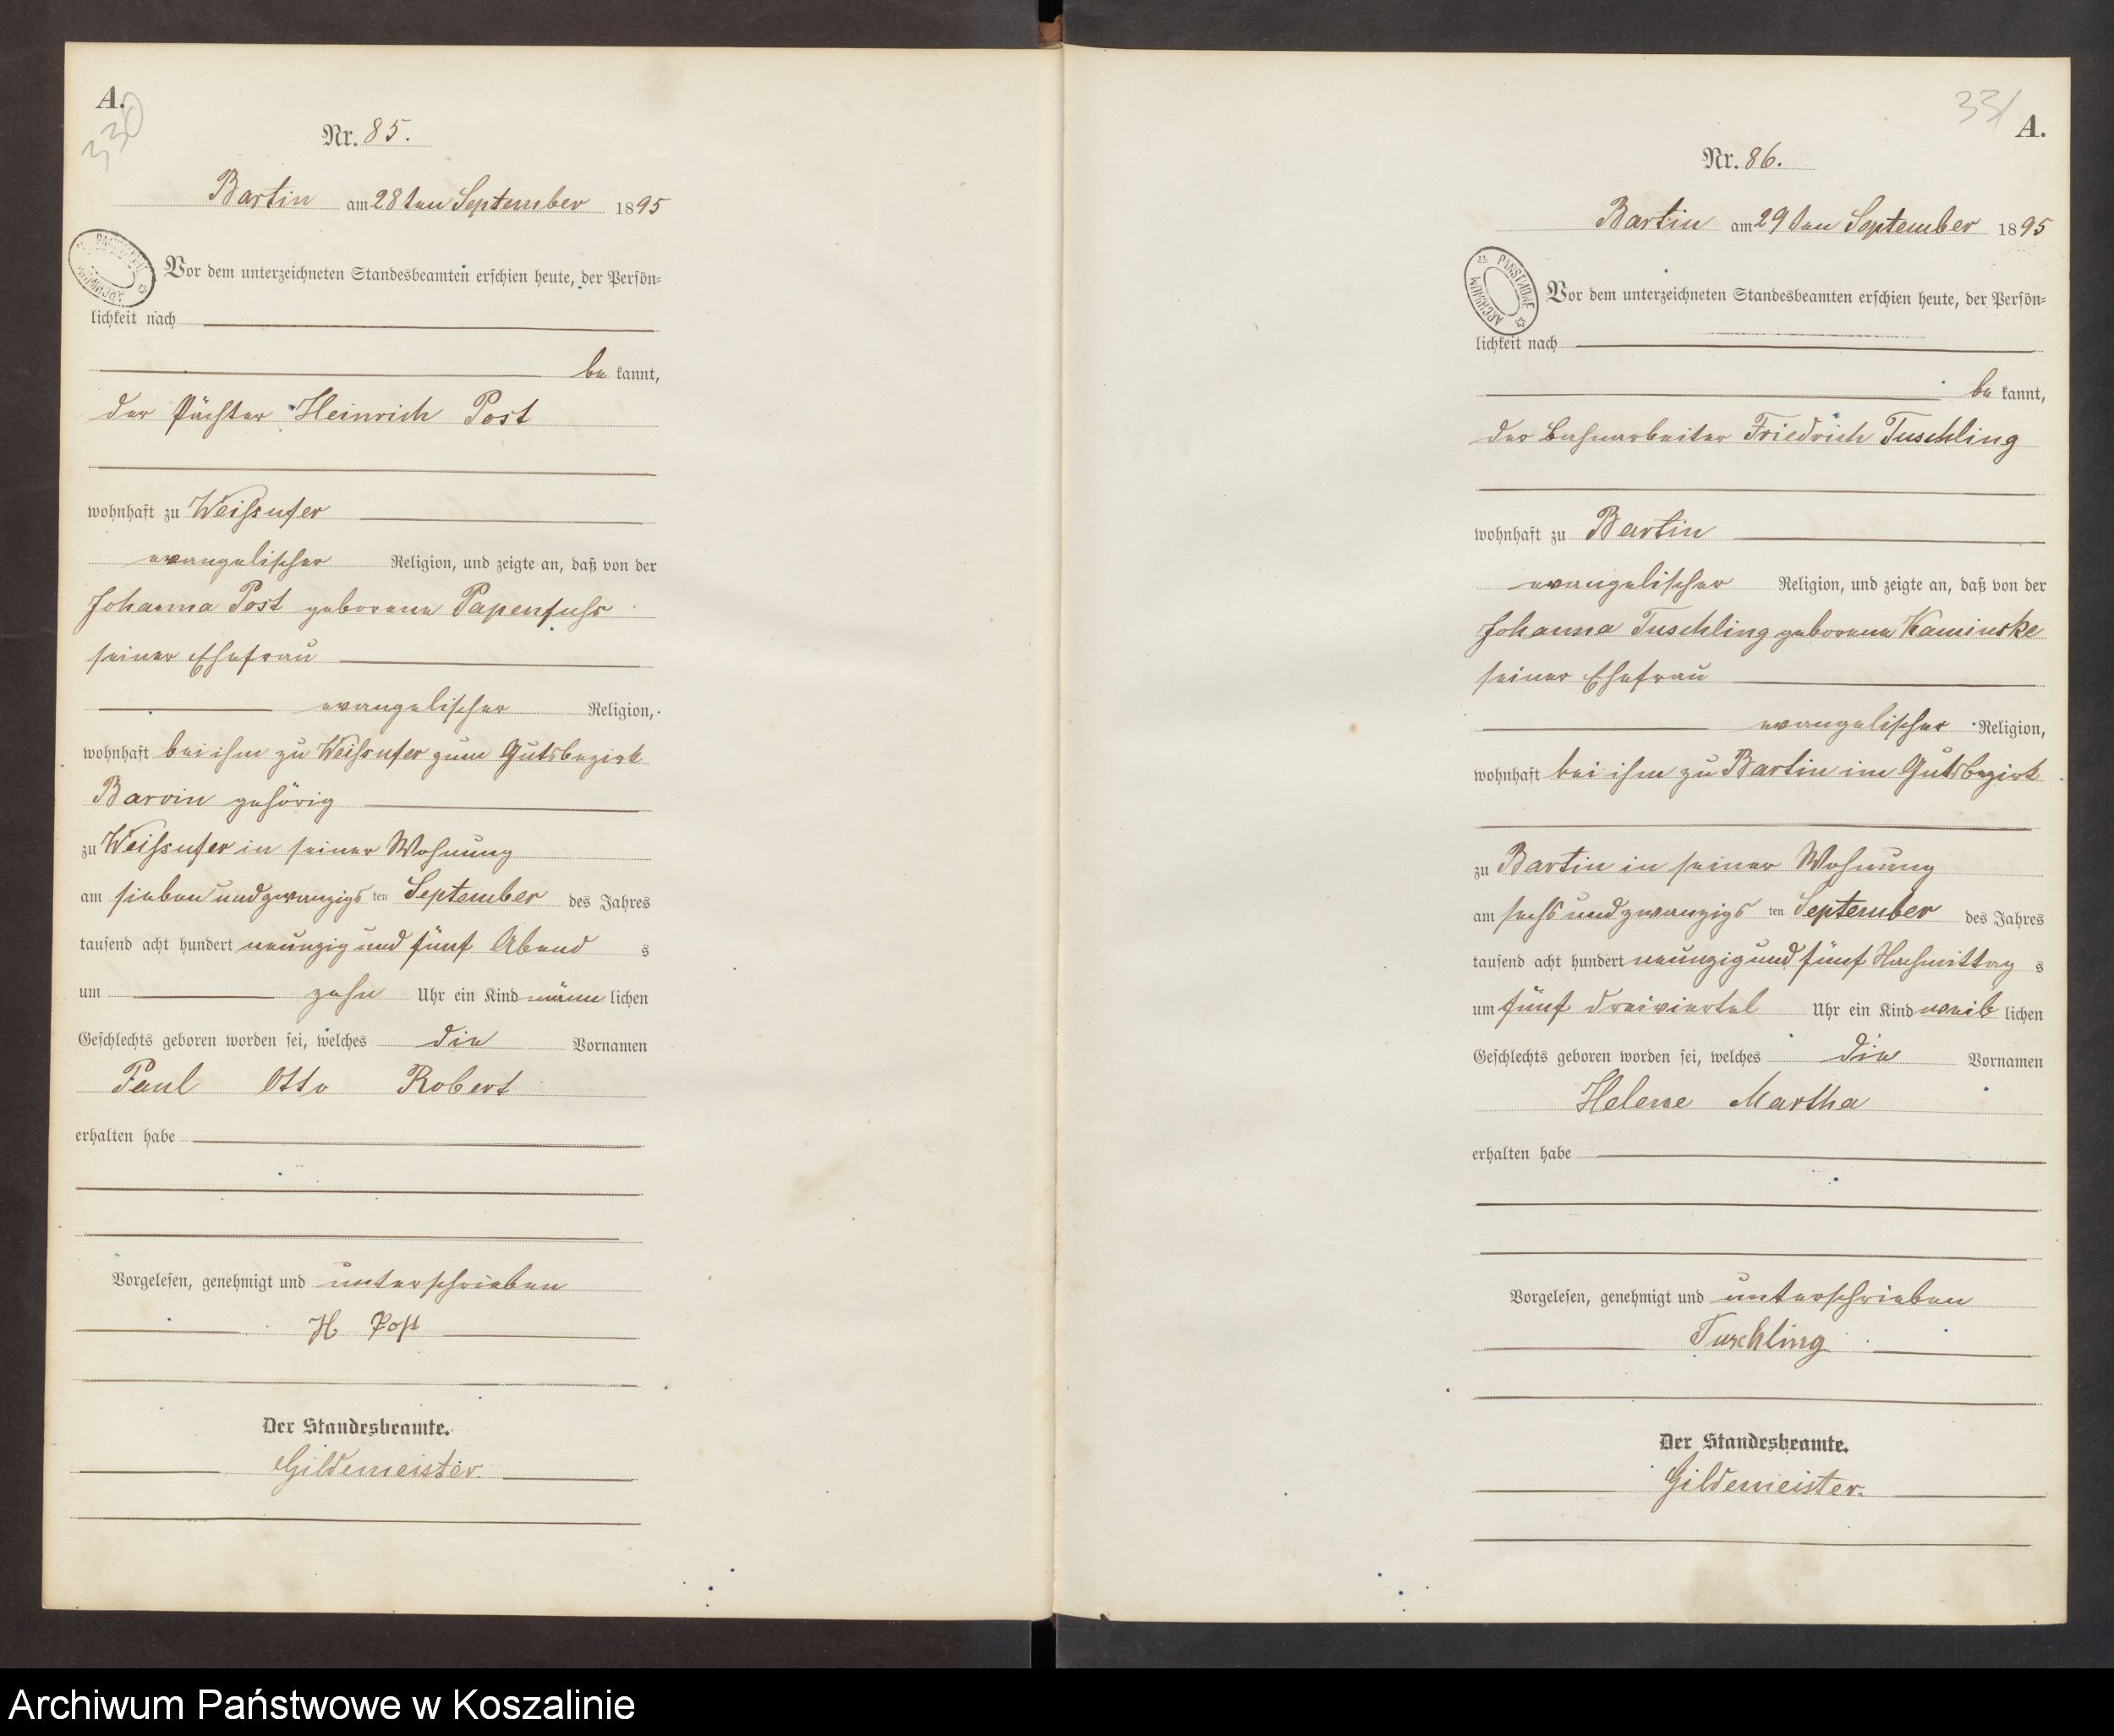 A.
330
Nr. 85.
Bartin am 28ten September 1895
Vor dem unterzeichneten Standesbeamten erschien heute, der Persön-
lichkeit nach
be kannt,
der Pächter Heinrich Post
wohnhaft zu Weißufer
evangelischer Religion, und zeigte an, daß von der
Johanna Post geborene Papenfuß
seiner Ehefrau
evangelischer Religion,
wohnhaft bei ihm zu Weißufer zum Gutsbezirk
Barvin gehörig
zu Weißufer in seiner Wohnung
am sieben und zwanzigs ten September des Jahres
tausend acht hundert neunzig und fünf Abend s
um zehn Uhr ein Kind männ lichen
Geschlechts geboren worden sei, welches die Vornamen
Paul Otto Robert
erhalten habe
Vorgelesen, genehmigt und unterschrieben
H Post
Der Standesbeamte.
Gildemeister.
331
A.
Nr. 86.
Bartin am 29ten September 1895
PAŃSTWOWE ARCHIWUM
Vor dem unterzeichneten Standesbeamten erschien heute, der Persön-
lichkeit nach
be kannt,
der Bahnarbeiter Friedrich Tuschling
wohnhaft zu Bartin
evangelischer Religion, und zeigte an, daß von der
Johanna Tuschling geborene Kaminske
seiner Ehefrau
evangelischer Religion,
wohnhaft bei ihm zu Bartin im Gutsbezirk
zu Bartin in seiner Wohnung
am sechs und zwanzigs ten September des Jahres
tausend acht hundert neunzig und fünf Nachmittag s
um fünf dreiviertel Uhr ein Kind weib lichen
Geschlechts geboren worden sei, welches die Vornamen
Helene Martha
erhalten habe
Vorgelesen, genehmigt und unterschrieben
Tuschling
Der Standesbeamte.
Gildemeister.
Archiwum Państwowe w Koszalinie